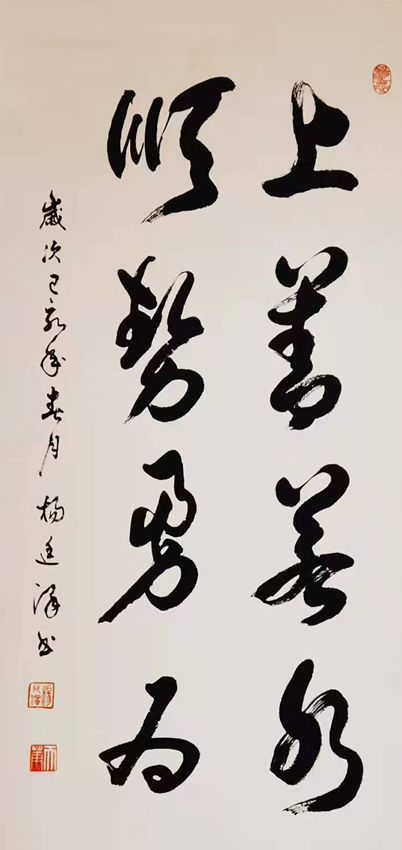 上善若水
順勢勇為
歲次己亥年春月楊廷澤書